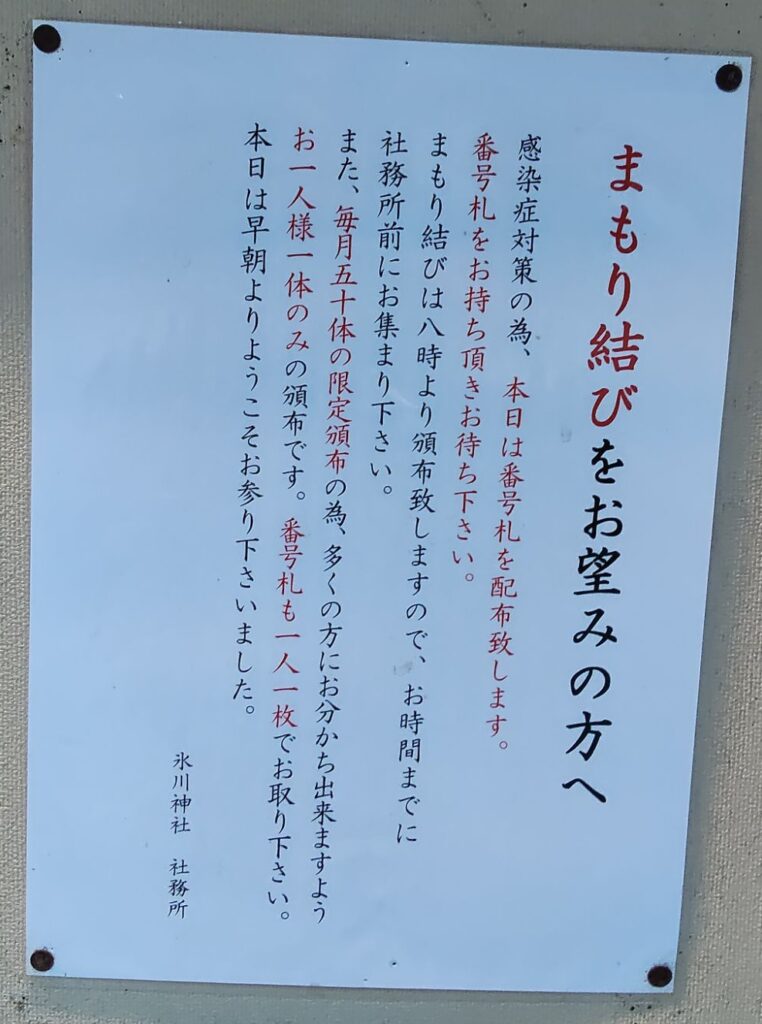 まもり結びをお望みの方へ
感染症対策の為、本日は番号札を配布致します。
番号札をお持ち頂きお待ち下さい。
まもり結びは八時より頒布致しますので、お時間までに
社務所前にお集まり下さい。
また、毎月五十体の限定頒布の為、多くの方にお分かち出来ますよう
お一人様一体のみの頒布です。番号札も一人一枚でお取り下さい。
本日は早朝よりようこそお参り下さいました。
氷川神社 社務所